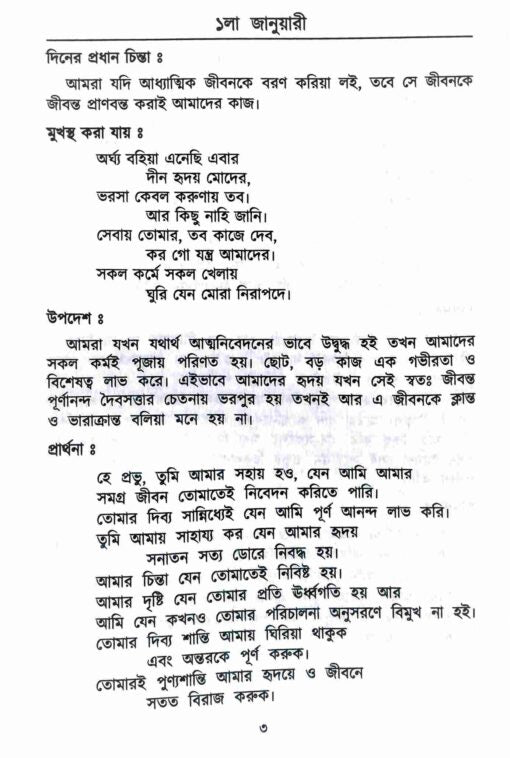 ১লা জানুয়ারী
দিনের প্রধান চিন্তা ঃ
আমরা যদি আধ্যাত্মিক জীবনকে বরণ করিয়া লই, তবে সে জীবনকে
জীবন্ত প্রাণবন্ত করাই আমাদের কাজ।
মুখস্থ করা যায় ঃ
অর্ঘ্য বহিয়া এনেছি এবার
দীন হৃদয় মোদের,
ভরসা কেবল করুণায় তব।
আর কিছু নাহি জানি।
সেবায় তোমার, তব কাজে দেব,
কর গো যন্ত্র আমাদের।
সকল কর্মে সকল খেলায়
ঘুরি যেন মোরা নিরাপদে।
উপদেশ ঃ
আমরা যখন যথার্থ আত্মনিবেদনের ভাবে উদ্বুদ্ধ হই তখন আমাদের
সকল কর্মই পূজায় পরিণত হয়। ছোট, বড় কাজ এক গভীরতা ও
বিশেষত্ব লাভ করে। এইভাবে আমাদের হৃদয় যখন সেই স্বতঃ জীবন্ত
পূর্ণানন্দ দৈবসত্তার চেতনায় ভরপুর হয় তখনই আর এ জীবনকে ক্লান্ত
ও ভারাক্রান্ত বলিয়া মনে হয় না।
প্রার্থনা ঃ
হে প্রভু, তুমি আমার সহায় হও, যেন আমি আমার
সমগ্র জীবন তোমাতেই নিবেদন করিতে পারি।
তোমার দিব্য সান্নিধ্যেই যেন আমি পূর্ণ আনন্দ লাভ করি।
তুমি আমায় সাহায্য কর যেন আমার হৃদয়
সনাতন সত্য ডোরে নিবদ্ধ হয়।
আমার চিন্তা যেন তোমাতেই নিবিষ্ট হয়।
আমার দৃষ্টি যেন তোমার প্রতি ঊর্ধ্বগতি হয় আর
আমি যেন কখনও তোমার পরিচালনা অনুসরণে বিমুখ না হই।
তোমার দিব্য শান্তি আমায় ঘিরিয়া থাকুক
এবং অন্তরকে পূর্ণ করুক।
তোমারই পুণ্যশান্তি আমার হৃদয়ে ও জীবনে
সতত বিরাজ করুক।
৩